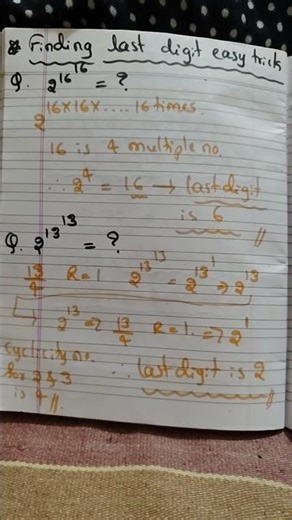 * Finding last digit easy trick
Q. 2^16^16 = ?
2^16×16×....16 times.
16 is 4 multiple no.
∴ 2^4 = 16 → last digit
is 6 //
Q. 2^13^13 = ?
13/4 R=1 2^13^13 = 2^13^1 ⇒ 2^13
→ 2^13 ⇒ 13/4 R=1. ⇒ 2^1
Cyclicity no.
for 2 & 3
is 4 //.
∴ last digit is 2 //